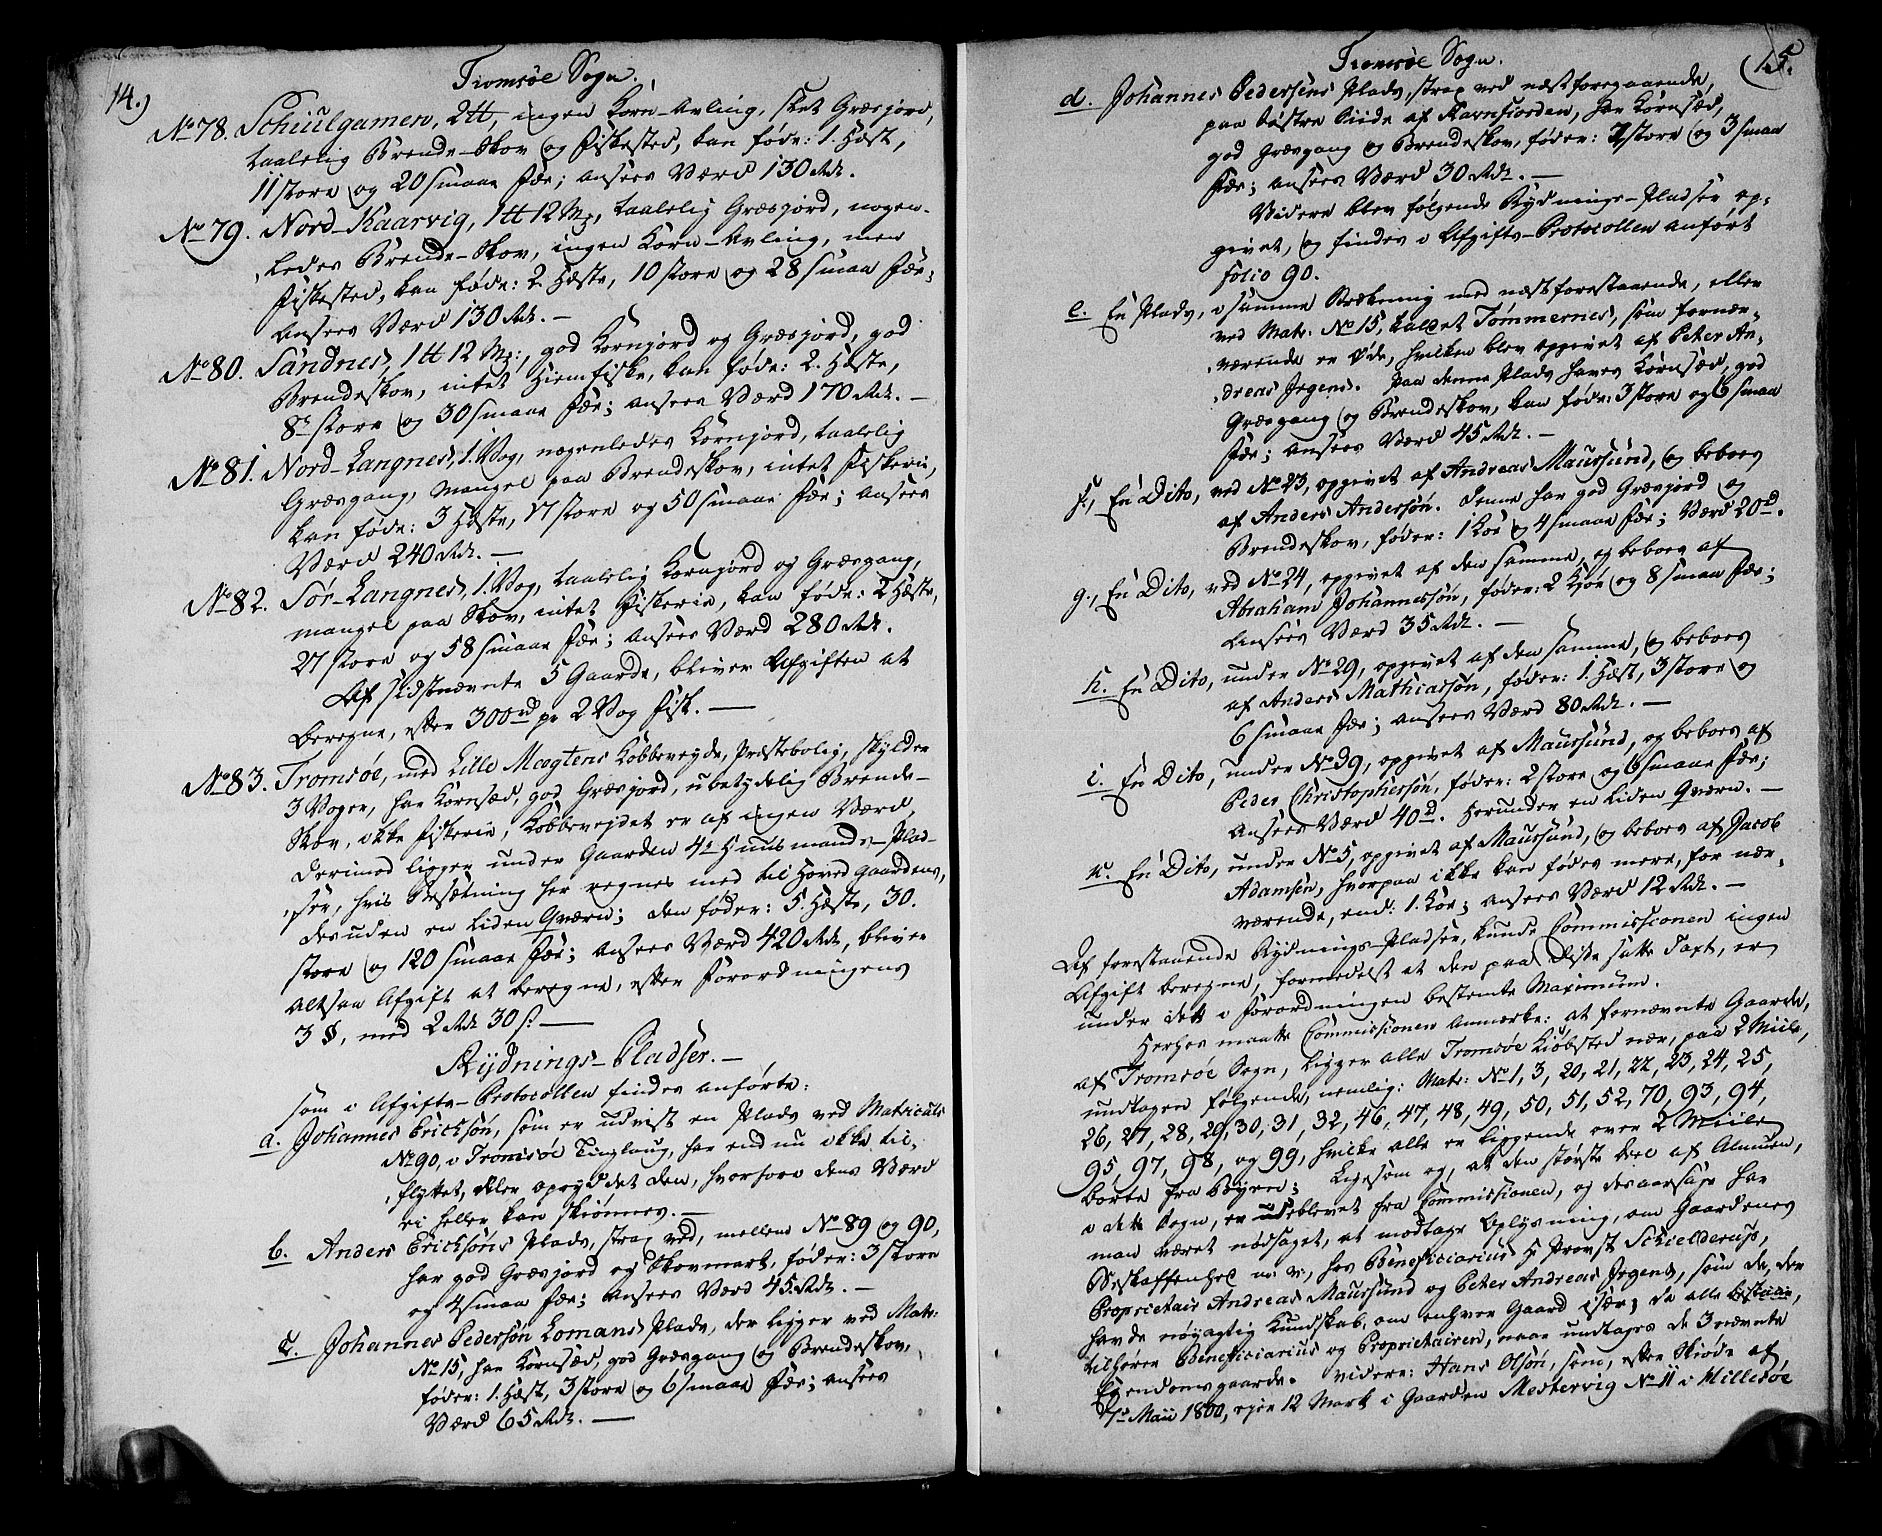 14.)
Tromsøe Sogn.
No 78. Schiulgamen, 2 tt, ingen Korn-Avling, slet Græsjord,
taalelig Brende-Skov og Fiskested, kan føde: 1. Hest,
11 store og 20 smaae Fæe; ansees Værd 130 Rdr.
No 79. Nord-Kaarvig, 1 tt 12 Mk, taalelig Græsjord, nogen-
ledes Brende-Skov, ingen Korn-Avling, men
Fiskested, kan føde: 2. Heste, 10 store og 28 smaa Fæe;
Ansees Værd 130 Rdr. —
No 80. Sandnes, 1 tt 12 Mk:, god Kornjord og Græsjord, god
Brendeskov, intet Hiemfiske, kan føde: 2. Heste,
8 store og 30 smaae Fæe; ansees Værd 170 Rdr. —
No 81. Nord-Langnes, 1. Vog, nogenledes Kornjord, taalelig
Græsgang, mangel paa Brendeskov, intet Fiskerie,
kan føde: 3 Heste, 17 store og 50 smaae Fæe; ansees
Værd 240 Rdr. —
No 82. Sør-Langnes, 1. Vog, taalelig Kornjord og Græsgang,
mangel paa Skov, intet Fiskerie, kan føde: 2 Heste,
27 store og 58 smaae Fæe; ansees Værd 280 Rdr.
Af sidstnævnte 5 Gaarde, bliver Afgiften at
beregne, efter 300 rd pr 2 Vog Fisk. —
No 83. Tromsøe, med Lille Mogtens Kobbeveyde, Præstebolig, skylder
3 Voger, har Kornsæd, god Græsjord, ubetydelig Brende-
Skov, ikke Fiskerie, Kobbevejdet er af ingen Værd,
derimod ligger under Gaarden 4 Huusmands-Plad-
ser, hvis Besætning her regnes med til Hoved Gaardens,
desuden en liden Qværn; den føder: 5. Heste, 30.
store og 120 smaae Fæe; ansees Værd 420 Rdr, bliver
altsaa Afgift at beregne, efter Forordningens
3 §, med 2 Rdr 30 s: —
Rydnings-Pladser. —
som i Afgifts-Protocollen findes anførte:
a. Johannes Ericksøn, som er udvist en Plads ved Matriculs
No 90, i Tromsøe Tinglaug, har end nu ikke til-
flyttet, eller opryddet den, hvorfore dens Værd
ei heller kan skiønnes. —
b. Anders Ericksøns Plads, strax ved, mellem No 89 og 90,
har god Græsjord og Skovmark, føder: 3 store
og 4 smaa Fæe; ansees Værd 45. Rdr. —
c. Johannes Pedersøn Lomans Plads, der ligger ved Matr:
No 15, har Kornsæd, god Græsgang og Brendeskov,
føder: 1. Hest, 3 store og 6 smaae Fæe; ansees
Værd 65 Rdr. —
Tromsøe Sogn.
(15.
d. Johannes Pedersens Plads, strax ved nestforegaaende,
paa Østre Siide af Kavnfiorden, har Kornsæd,
god Græsgang og Brendeskov, føder: 2 store og 3 smaae
Fæe; ansees Værd 30 Rdr. —
Videre blev følgende Rydnings-Pladser op-
givet, og findes i Afgifts-Protocollen anført
Folio 90.
e. En Plads, i samme Strækning med næstforestaaende, eller
ved Matr. No 15, kaldet Tømmernes, som fornær-
værende er Øde, hvilken blev opgivet af Peter An-
dreas Jrgens. Paa denne Plads haves Kornsæd, god
Græsgang og Brendeskov, kan føde: 3 store og 6 smaa
Fæe; ansees Værd 45 Rdr. —
f., En Dito, ved No 23, opgivet af Andreas Maursund, og beboes
af Anders Andersøn. Denne har god Græsjord og
Brendeskov, føder: 1 Koe og 4 smaae Fæe; Værd 20 d.
g., En Dito, ved No 24, opgivet af den samme, og beboes af
Abraham Johannessøn, føder: 2 Kiøe og 8 smaa Fæe;
Ansees Værd 35 Rdr. —
h. En Dito, under No 29, opgivet af den samme, og beboes
af Anders Mathiassøn, føder: 1. Hest, 3 store og
6 smaae Fæe; ansees Værd 80 Rdr. —
i. En Dito, under No 39, opgivet af Maursund, og beboes af
Peder Christophersøn, føder: 2 store og 6 smaae Fæe;
Ansees Værd 40 d. Herunder en liden Qværn. —
k. En Dito, under No 5, opgivet af Maursund, og beboes af Jacob
Adamsøn, hvorpaa ikke kan fødes mere, for nær-
værende, end: 1. Koe; ansees Værd 12 Rdr. —
Af forestaaende Rydnings-Pladser, kunde Commissionen ingen
Afgift beregne, formedelst at den paa disse satte Taxt, er
under dett i Forordningen bestemte Maximum.
Herhos maatte Commissionen anmærke: at fornævnte Gaarde,
af Tromsøe Sogn, ligger alle Tromsøe Kiøbsted nær, paa 2 Miile,
undtagen følgende, nemlig: Matr: No 1, 3, 20, 21, 22, 23, 24, 25,
26, 27, 28, 29, 30, 31, 32, 46, 47, 48, 49, 50, 51, 52, 70, 93, 94,
95, 97, 98, og 99, hvilke alle er liggende over 2 Miile
borte fra Byen; Ligesom og, at den største deel af Almuen,
i dette Sogn, er udeblevet fra Commissionen, og desaarsage har
man været nødsaget, at modtage Oplysning, om Gaardenes
Beskaffenhed m: v:, hos Beneficiarius Hr Provst Schielderup,
Proprietair Andreas Maursund og Peter Andreas Jrgens, som de, der
havde nøyagtig Kundskab, om enhver Gaard især; da alle
tilhører Beneficiarius og Proprietairen, naar undtages de 3 nævnte
Eyendomsgaarde. Videre: Hans Olsøn, som, efter Skiøde af
7de Maii 1800, ejer 12 Mark i Gaarden Mestervig No 11 i Hillesøe